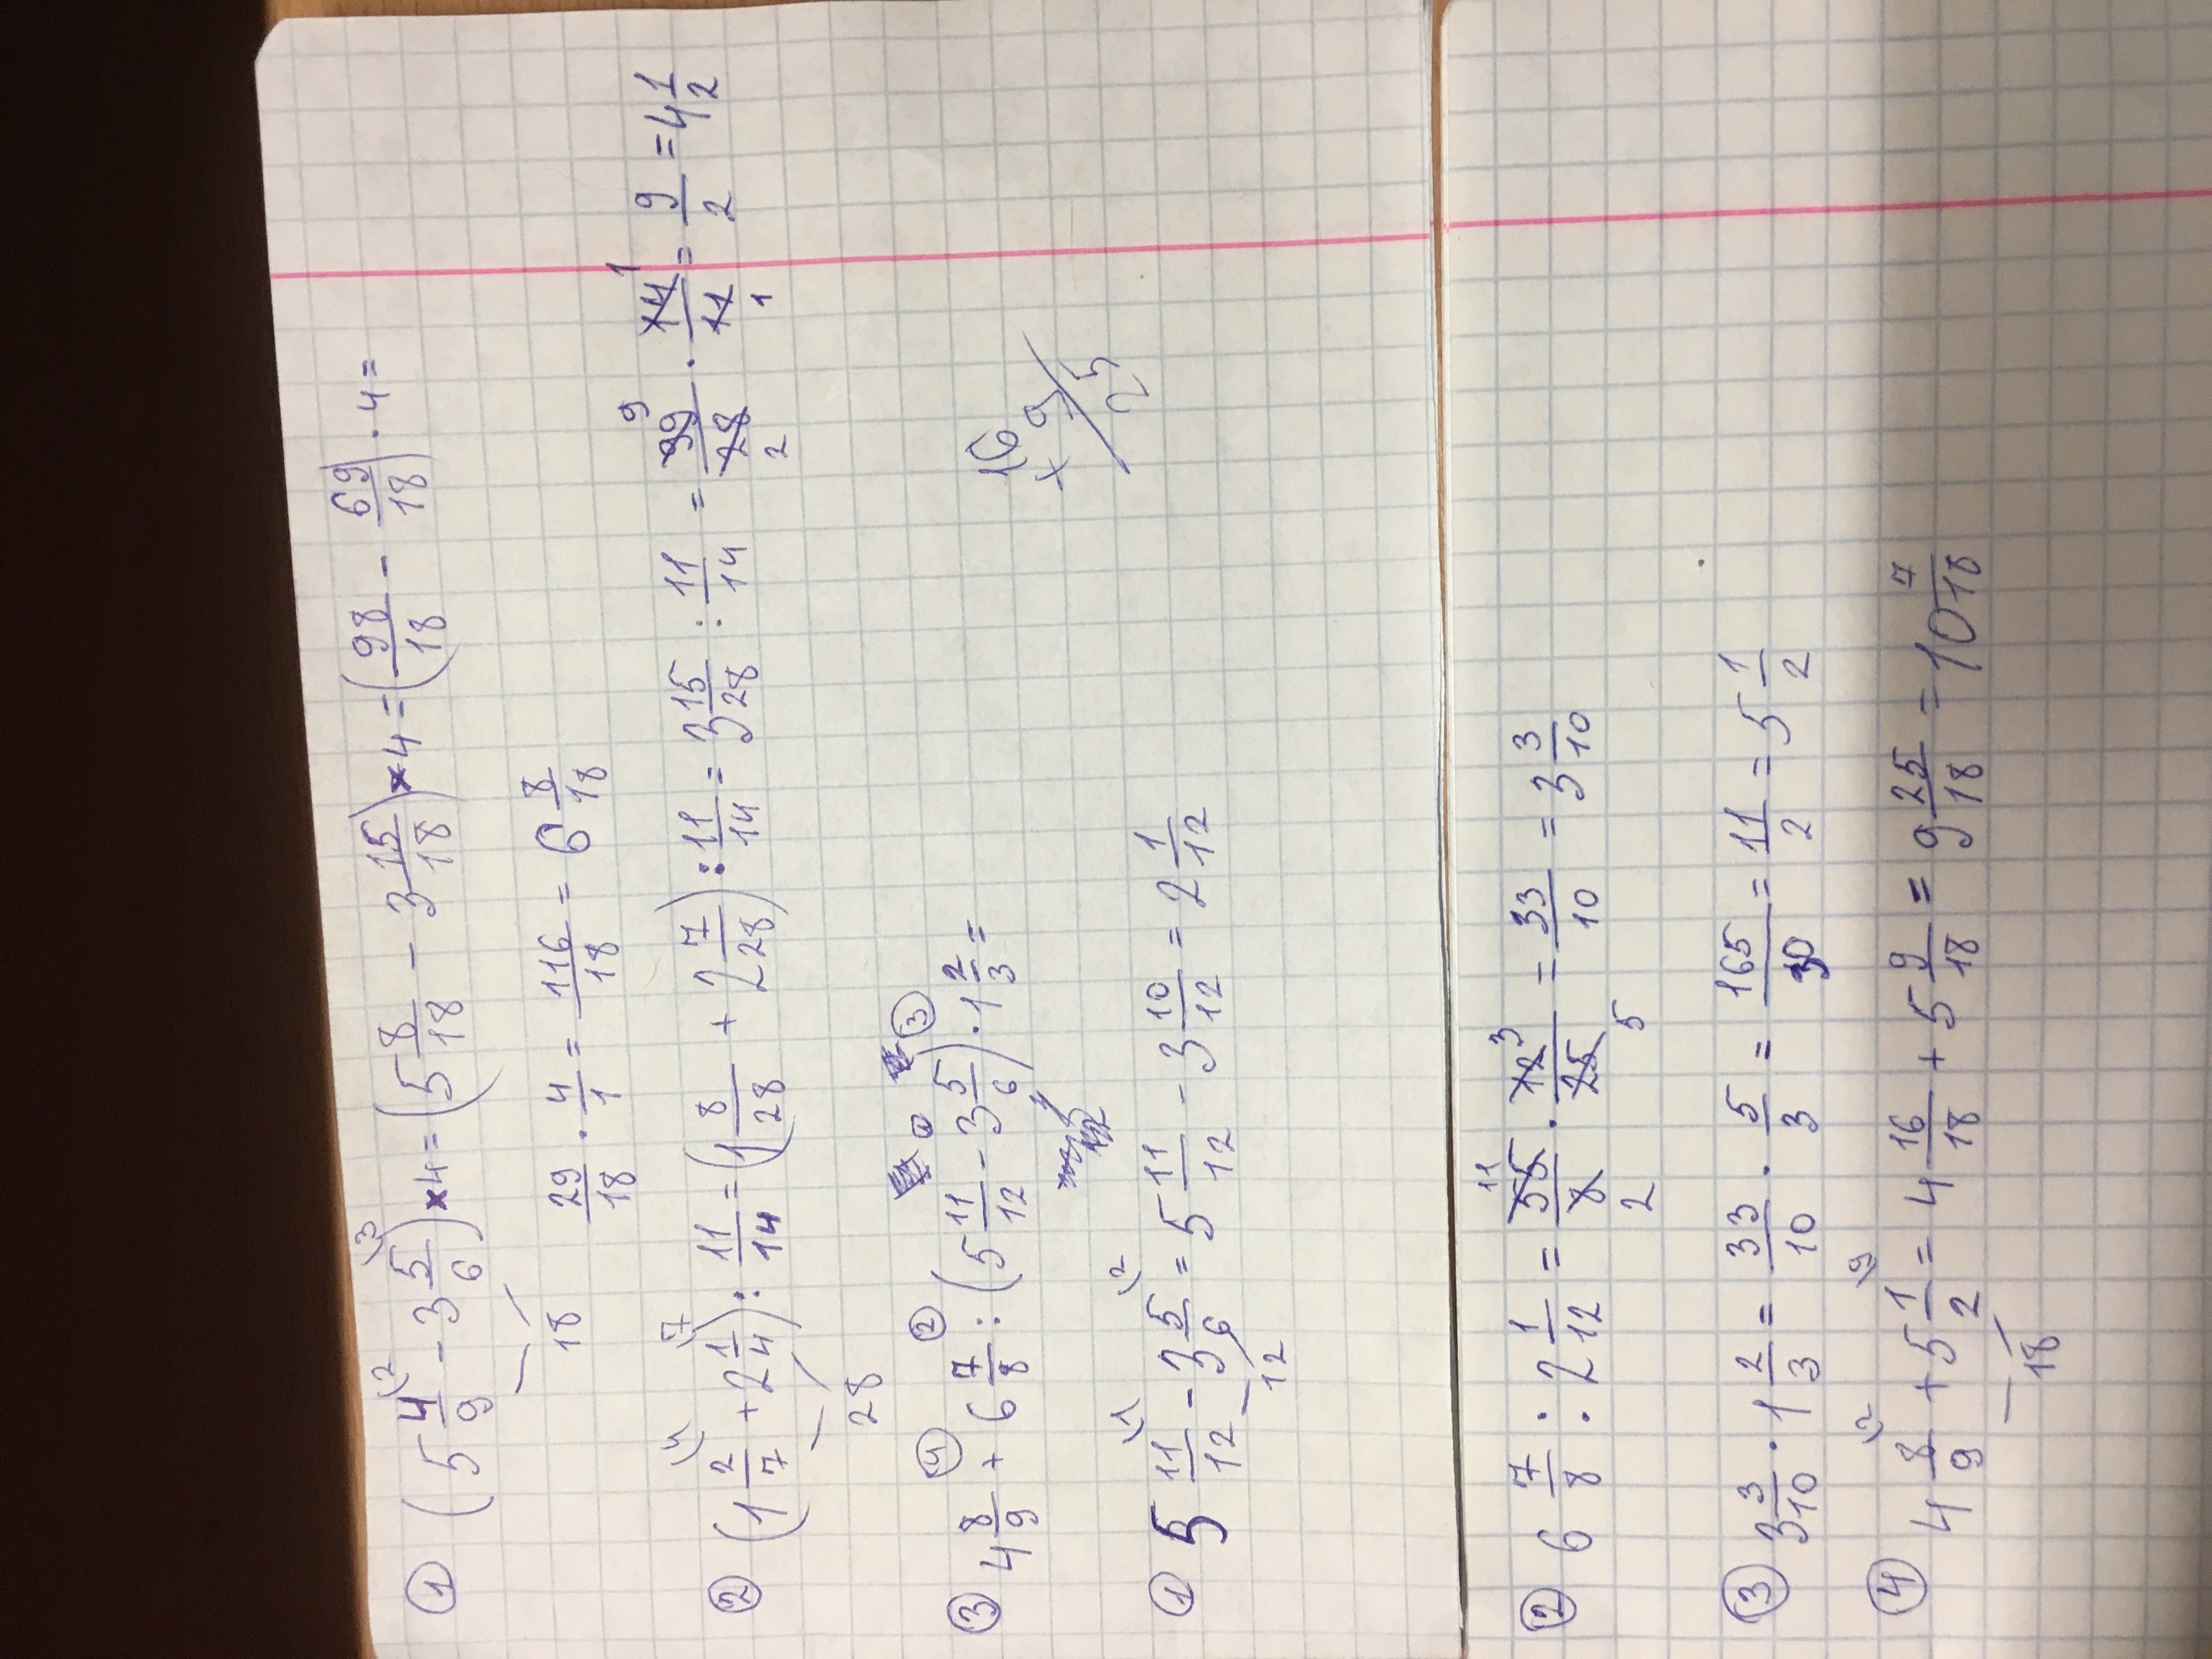 ① (5 4/9 \2 - 3 5/6 \3) × 4 = (5 8/18 - 3 15/18) × 4 = (98/18 - 69/18) · 4 =
18
29/18 · 4/1 = 116/18 = 6 8/18
② (1 2/7 \4 + 2 1/4 \7) : 11/14 = (1 8/28 + 2 7/28) : 11/14 = 3 15/28 : 11/14 = 99/28 · 14/11 = 9/2 = 4 1/2
9 1
2 1
28
④ ② ① ③
③ 4 8/9 + 6 7/8 : (5 11/12 - 3 5/6) · 1 2/3 =
16
+ 9
25
① 5 11/12 \1 - 3 5/6 \2 = 5 11/12 - 3 10/12 = 2 1/12
12
② 6 7/8 : 2 1/12 = 55/8 · 12/25 = 33/10 = 3 3/10
11 3
2 5
③ 3 3/10 · 1 2/3 = 33/10 · 5/3 = 165/30 = 11/2 = 5 1/2
④ 4 8/9 \2 + 5 1/2 \9 = 4 16/18 + 5 9/18 = 9 25/18 = 10 7/18
18